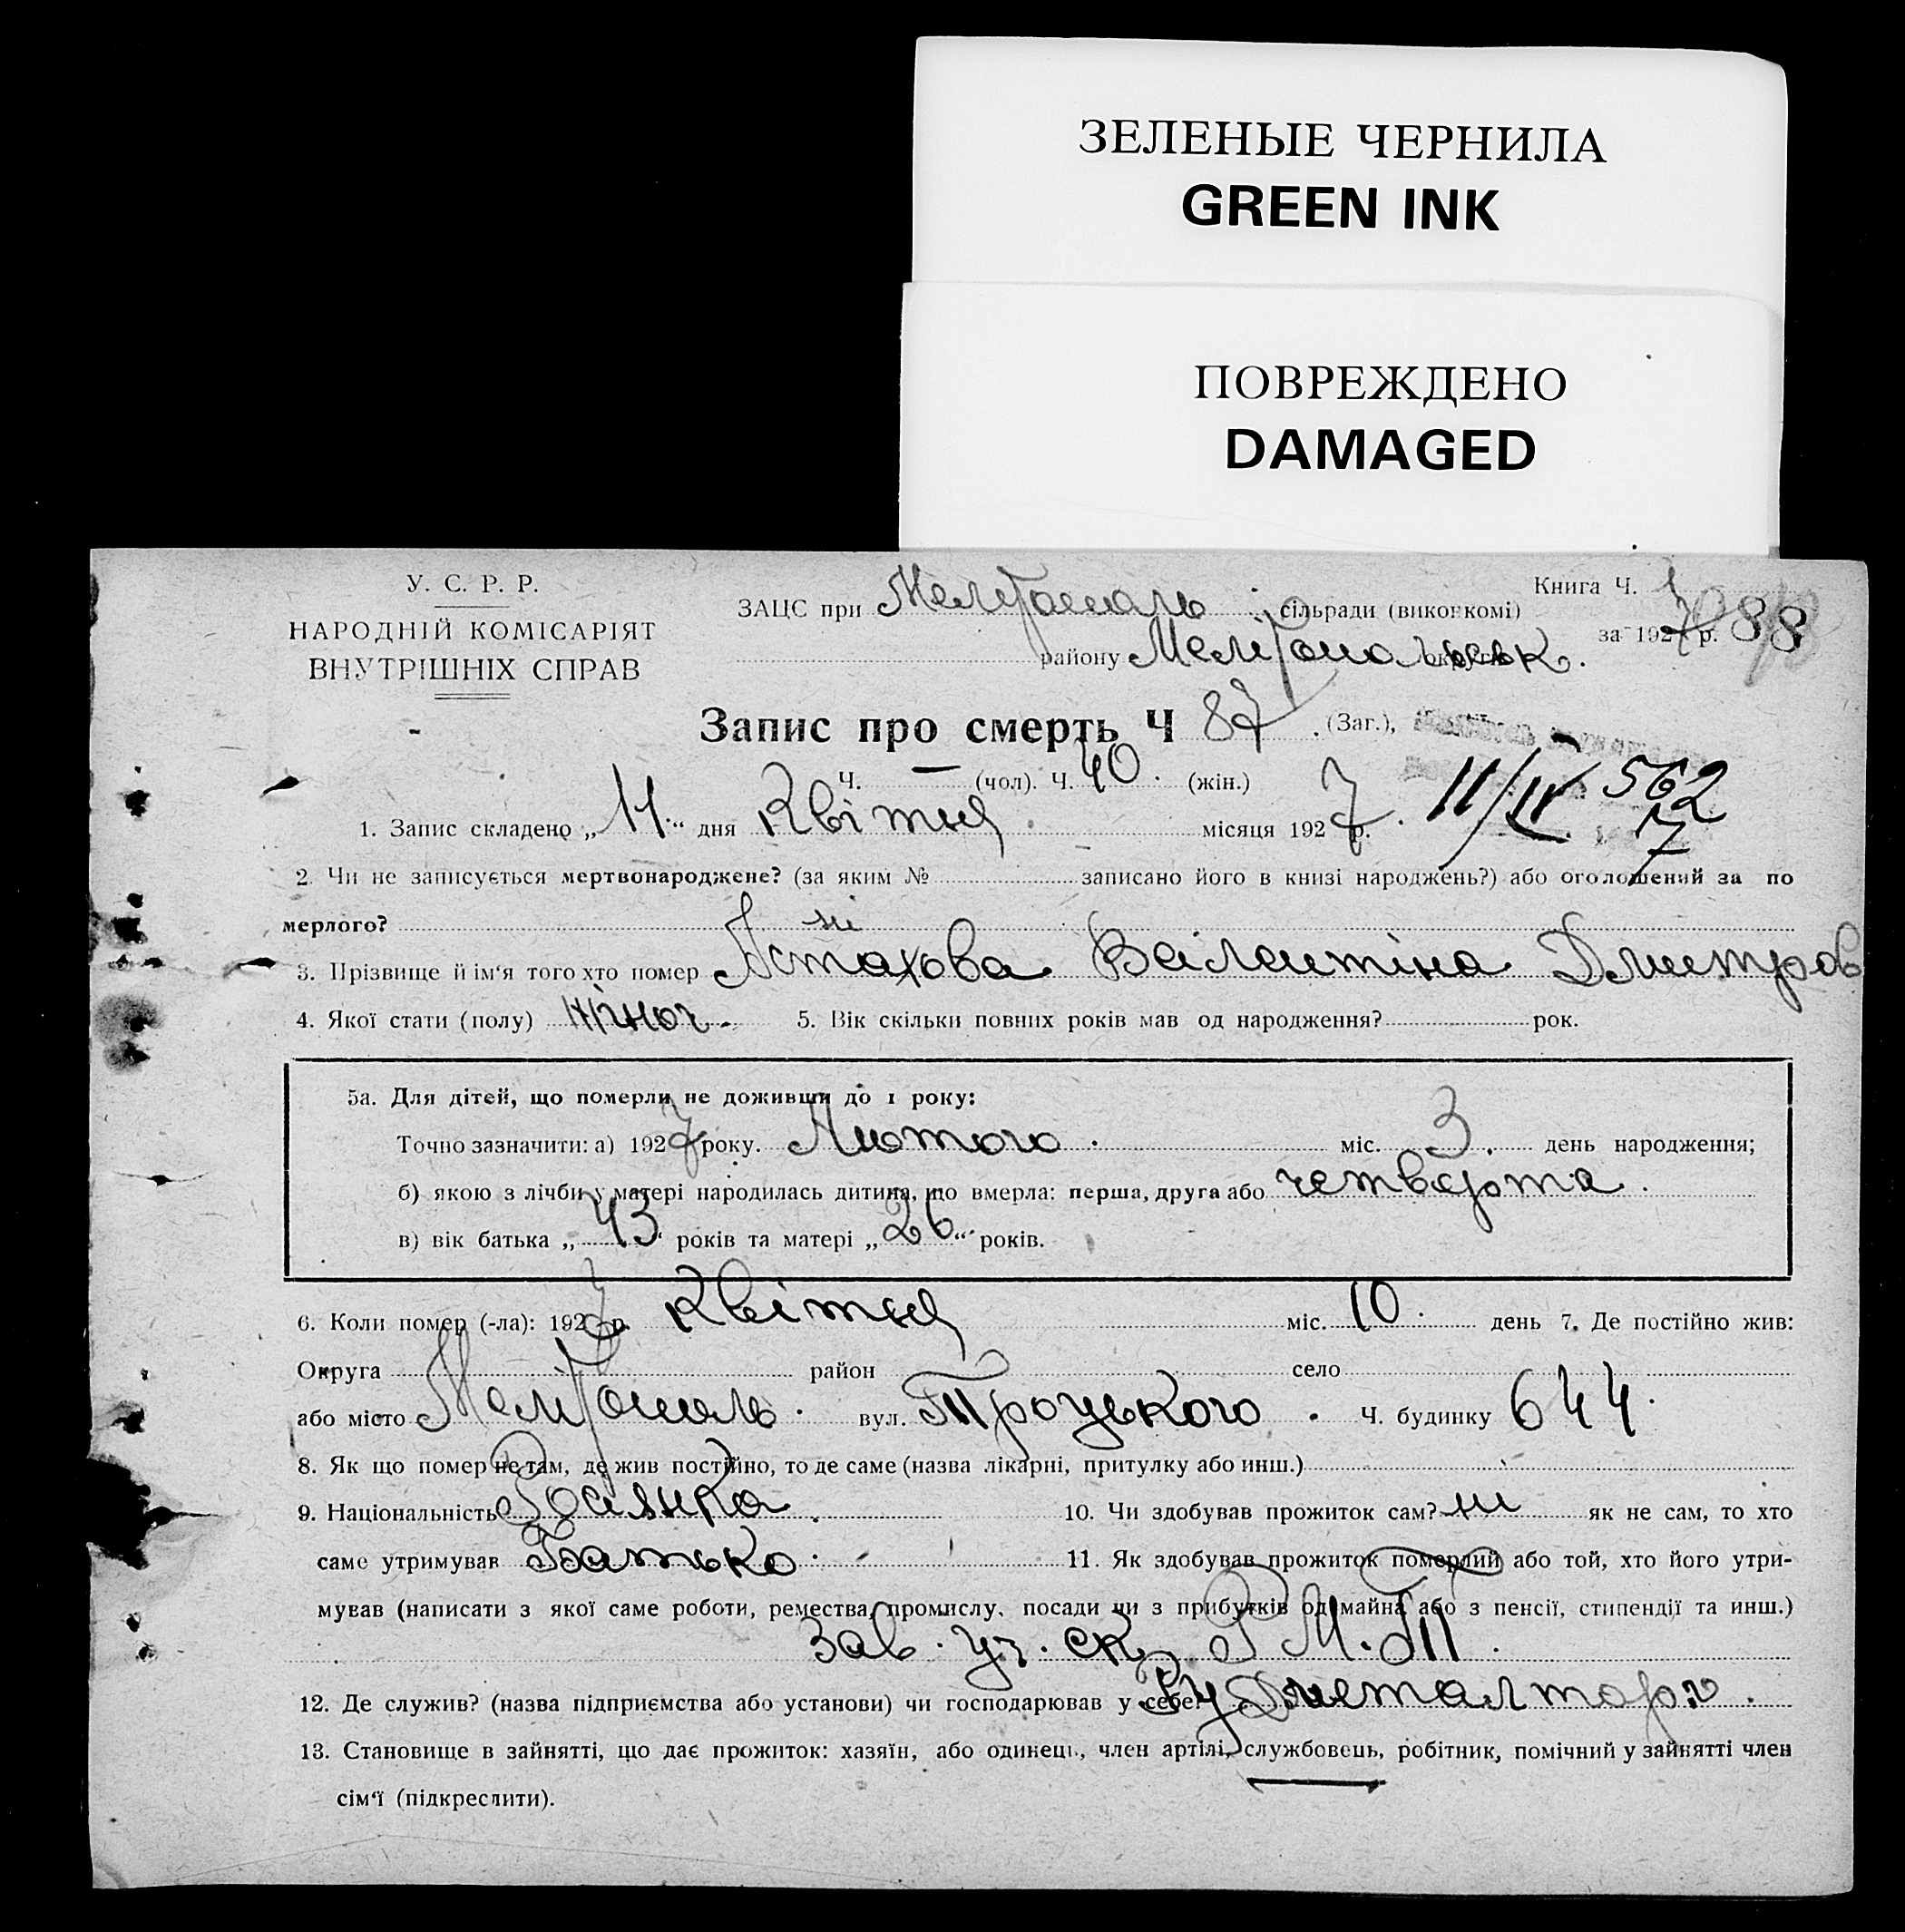 ЗЕЛЕНЫЕ ЧЕРНИЛА
GREEN INK
ПОВРЕЖДЕНО
DAMAGED
У. С. Р. Р.
НАРОДНІЙ КОМІСАРІЯТ
ВНУТРІШНІХ СПРАВ
ЗАЦС при Мелітополь сільради (виконкомі)
Книга Ч. 1
за 1927 р. 88
району Мелітопольськ.
Запис про смерть Ч 87 (Заг.),
Ч. — (чол). Ч. 40. (жін.)
1. Запис складено „11“ дня Квітня місяця 1927 р. 11/IV 562
7
2. Чи не записується мертвонароджене? (за яким № записано його в книзі народжень?) або оголошений за по
мерлого? ні
3. Прізвище й ім‘я того хто помер Астахова Валентіна Дмитров
4. Якої стати (полу) жіноч. 5. Вік скільки повних років мав од народження? рок.
5а. Для дітей, що померли не доживши до 1 року:
Точно зазначити: а) 1927 року. Лютого. міс. 3. день народження;
б) якою з лічби у матері народилась дитина, що вмерла: перша, друга або четверта.
в) вік батька „43“ років та матері „26“ років.
6. Коли помер (-ла): 1927 р. Квітня міс. 10. день 7. Де постійно жив:
Округа район село
або місто Мелітополь. вул. Троцького. Ч. будинку 644.
8. Як що помер не там, де жив постійно, то де саме (назва лікарні, притулку або инш.)
9. Національність Росіянка. 10. Чи здобував прожиток сам? ні як не сам, то хто
саме утримував Батько. 11. Як здобував прожиток померлий або той, хто його утри-
мував (написати з якої саме роботи, ремества, промислу, посади чи з прибутків од майна або з пенсії, стипендії та инш.)
Зав. уч. ск. Р.М.Т.
12. Де служив? (назва підприємства або установи) чи господарював у себе? Рудметалторг.
13. Становище в зайнятті, що дає прожиток: хазяїн, або одинець, член артілі, службовець, робітник, помічний у зайнятті член
сім‘ї (підкреслити).